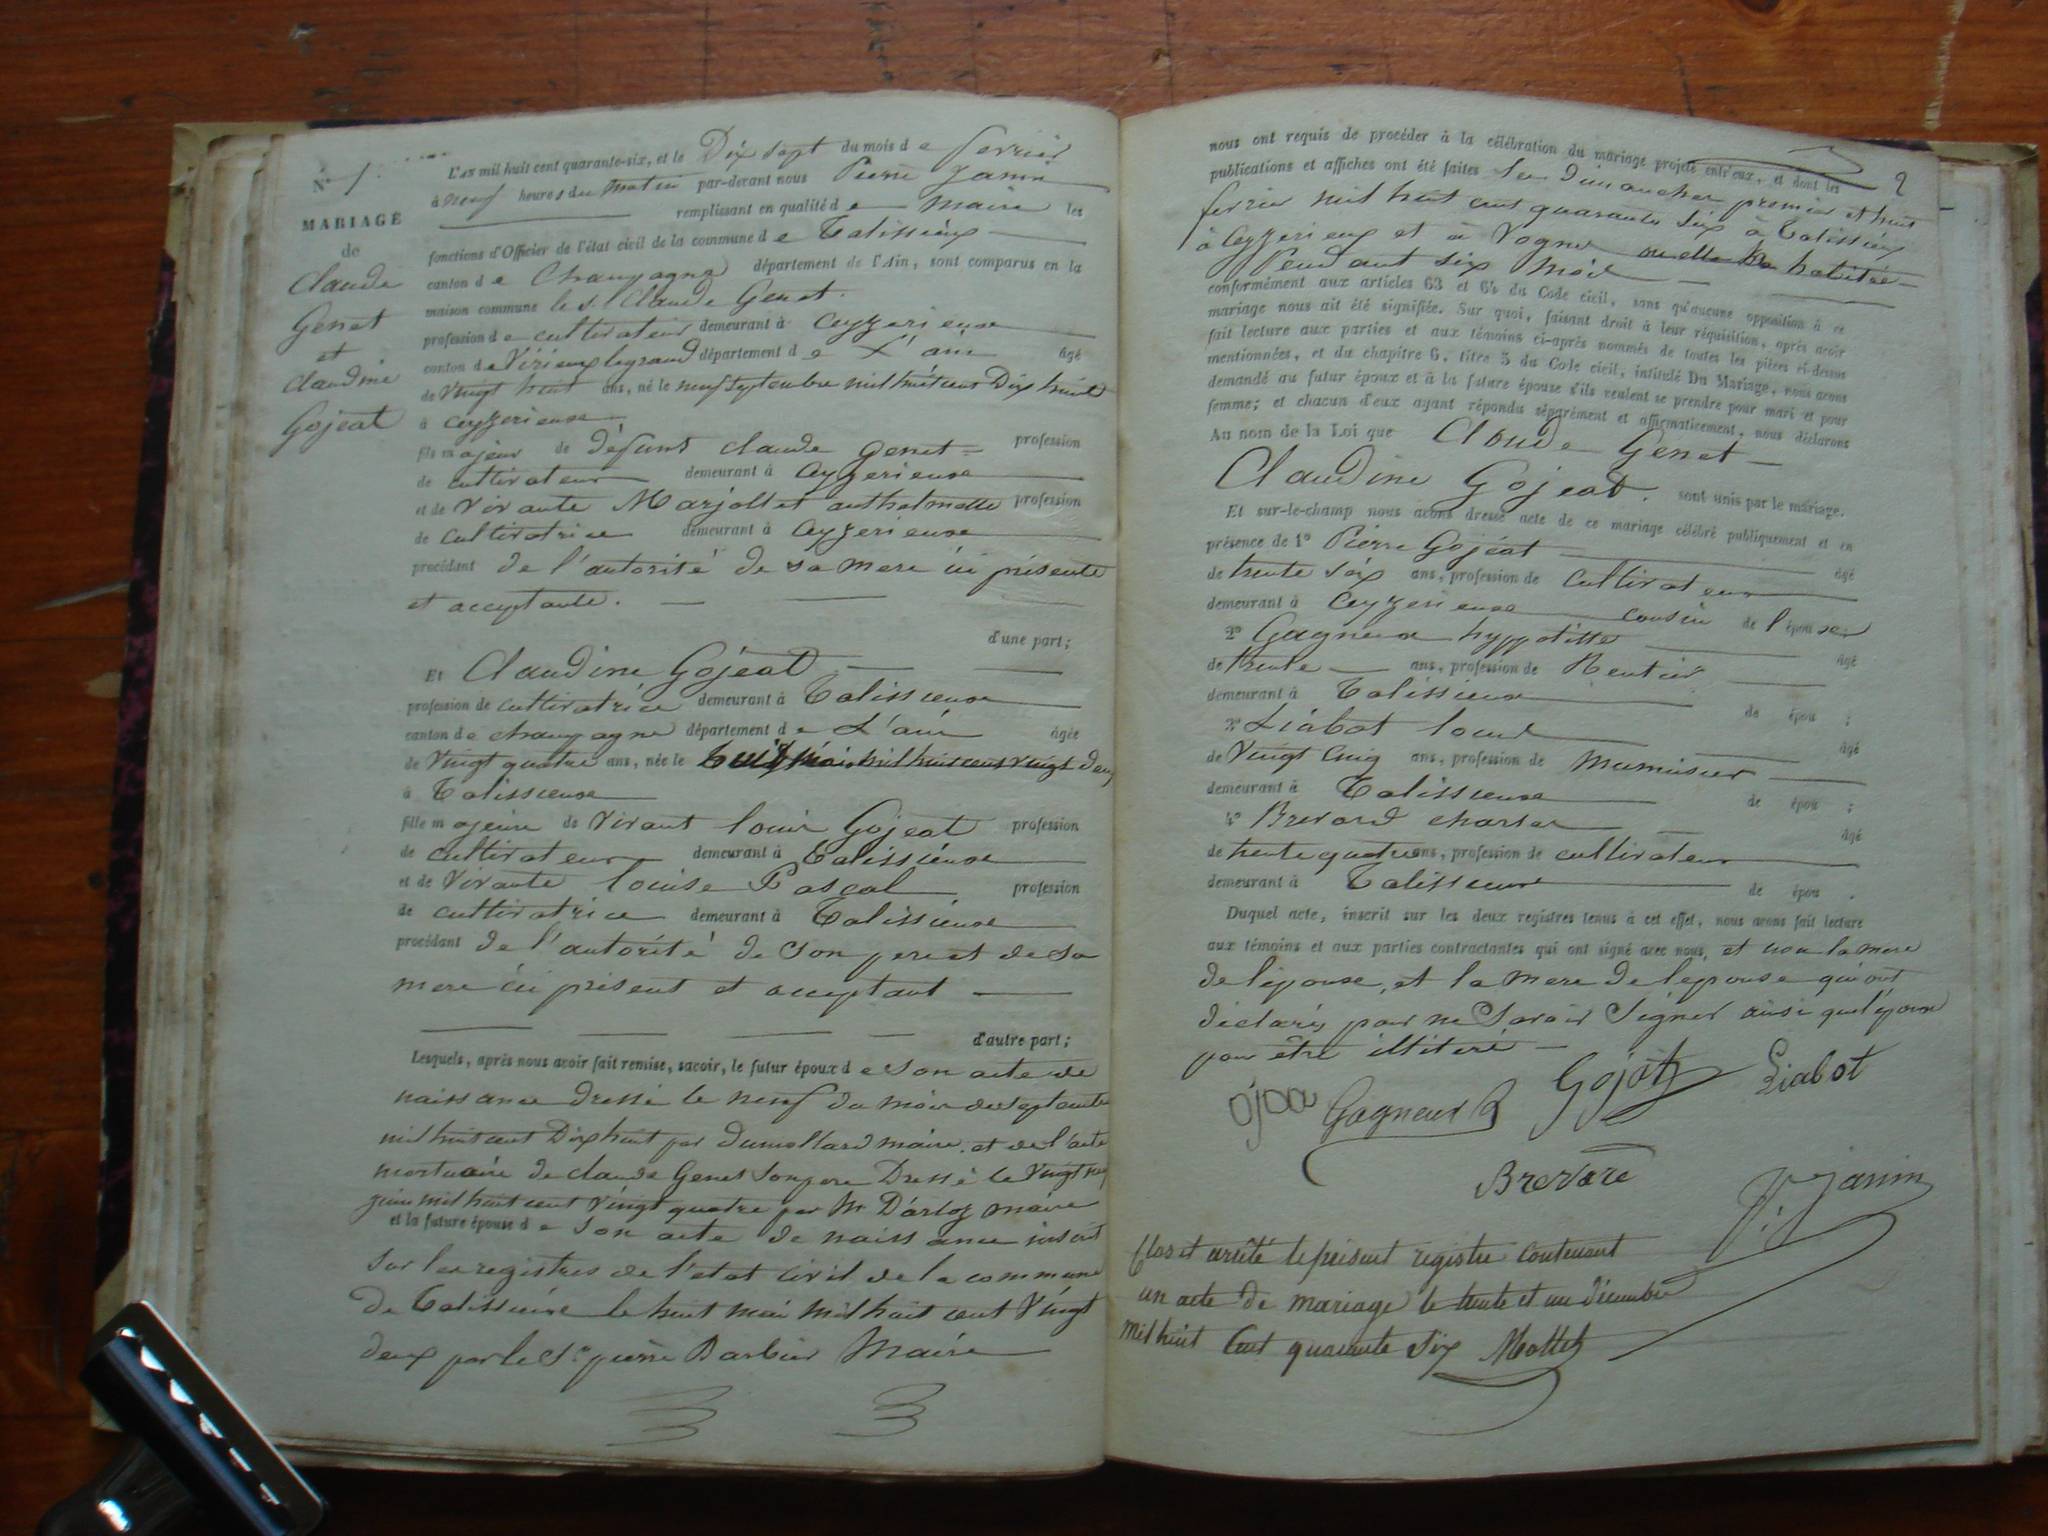 N° 1.
MARIAGE
de
Claude
Genet
et
Claudine
Gojeat
L'AN mil huit cent quarante-six, et le Dix Sept du mois de fevrier
à neuf heures du matin par-devant nous Pierre Janin
remplissant en qualité de maire les
fonctions d'Officier de l'état civil de la commune de Talissieux
canton de Champagne département de l'Ain, sont comparus en la
maison commune le s. Claude Genet.
profession de cultivateur demeurant à Ceyzerieux
canton de Virieux legrand département de L'ain âgé
de vingt huit ans, né le neuf septembre mil huit cent Dix huit
à ceyzerieux
fils majeur de défunt claude Genet profession
de cultivateur demeurant à Ceyzerieux
et de vivante Marjollet anthelmette profession
de cultivatrice demeurant à Ceyzerieux
procédant de l'autorité de sa mere ici présente
et acceptante.
d'une part;
Et Claudine Gojeat
profession de cultivatrice demeurant à Talissieux
canton de champagne département de L'ain âgée
de vingt quatre ans, née le huit mai mil huit cent vingt deux
à Talissieux
fille majeure de vivant Louis Gojeat profession
de cultivateur demeurant à Talissieux
et de vivante Louise Pascal profession
de cultivatrice demeurant à Talissieux
procédant de l'autorité de son pere et de sa
mere ici présent et acceptant
d'autre part;
Lesquels, après nous avoir fait remise, savoir, le futur époux de son acte de
naissance dressé le neuf du mois de septembre
mil huit cent Dix huit par Dumollard maire et de l'acte
mortuaire de claude Genet son pere Dressé le vingt
juin mil huit cent vingt quatre par Mr Darloz maire
et la future épouse de son acte de naissance inscrit
sur les registres de l'etat civil de la commune
de Talissieux le huit mai mil huit cent vingt
deux par le Sr pierre Barbier Maire
2
nous ont requis de procéder à la célébration du mariage projeté entr'eux, et dont les
publications et affiches ont été faites les Dimanches premier et huit
fevrier mil huit cent quarante six à Talissieux
à Ceyzerieux et à Vognes ou elle a habitée
Pendant six mois
conformément aux articles 63 et 64 du Code civil, sans qu'aucune opposition à ce
mariage nous ait été signifiée. Sur quoi, faisant droit à leur réquisition, après avoir
fait lecture aux parties et aux témoins ci-après nommés de toutes les pièces ci-dessus
mentionnées, et du chapitre 6, titre 5 du Code civil, intitulé Du Mariage, nous avons
demandé au futur époux et à la future épouse s'ils veulent se prendre pour mari et pour
femme; et chacun d'eux ayant répondu séparément et affirmativement, nous déclarons
Au nom de la Loi que Claude Genet
Claudine Gojeat. sont unis par le mariage.
Et sur-le-champ nous avons dressé acte de ce mariage célébré publiquement et en
présence de 1° Pierre Gojéat âgé
de trente six ans, profession de cultivateur
demeurant à Ceyzerieux cousin de l'épouse
2° Gagneux hyppolitte âgé
de trente ans, profession de Rentier
demeurant à Talissieux de épou ;
3° Liabot Louis âgé
de vingt cinq ans, profession de Menuisier
demeurant à Talissieux de épou ;
4° Brevard charles âgé
de trente quatre ans, profession de cultivateur
demeurant à Talissieux de épou .
Duquel acte, inscrit sur les deux registres tenus à cet effet, nous avons fait lecture
aux témoins et aux parties contractantes qui ont signé avec nous, et non la mere
de l'épouse, et la mere de lepouse qui ont
déclarés pour ne Savoir Signer ainsi que l'époux
pour être illitéré
Gagneux Gojat Liabot
Brevard P. Janin
Clos et arrêté le présent registre contenant
un acte de mariage le trente et un décembre
mil huit Cent quarante Six Mottet